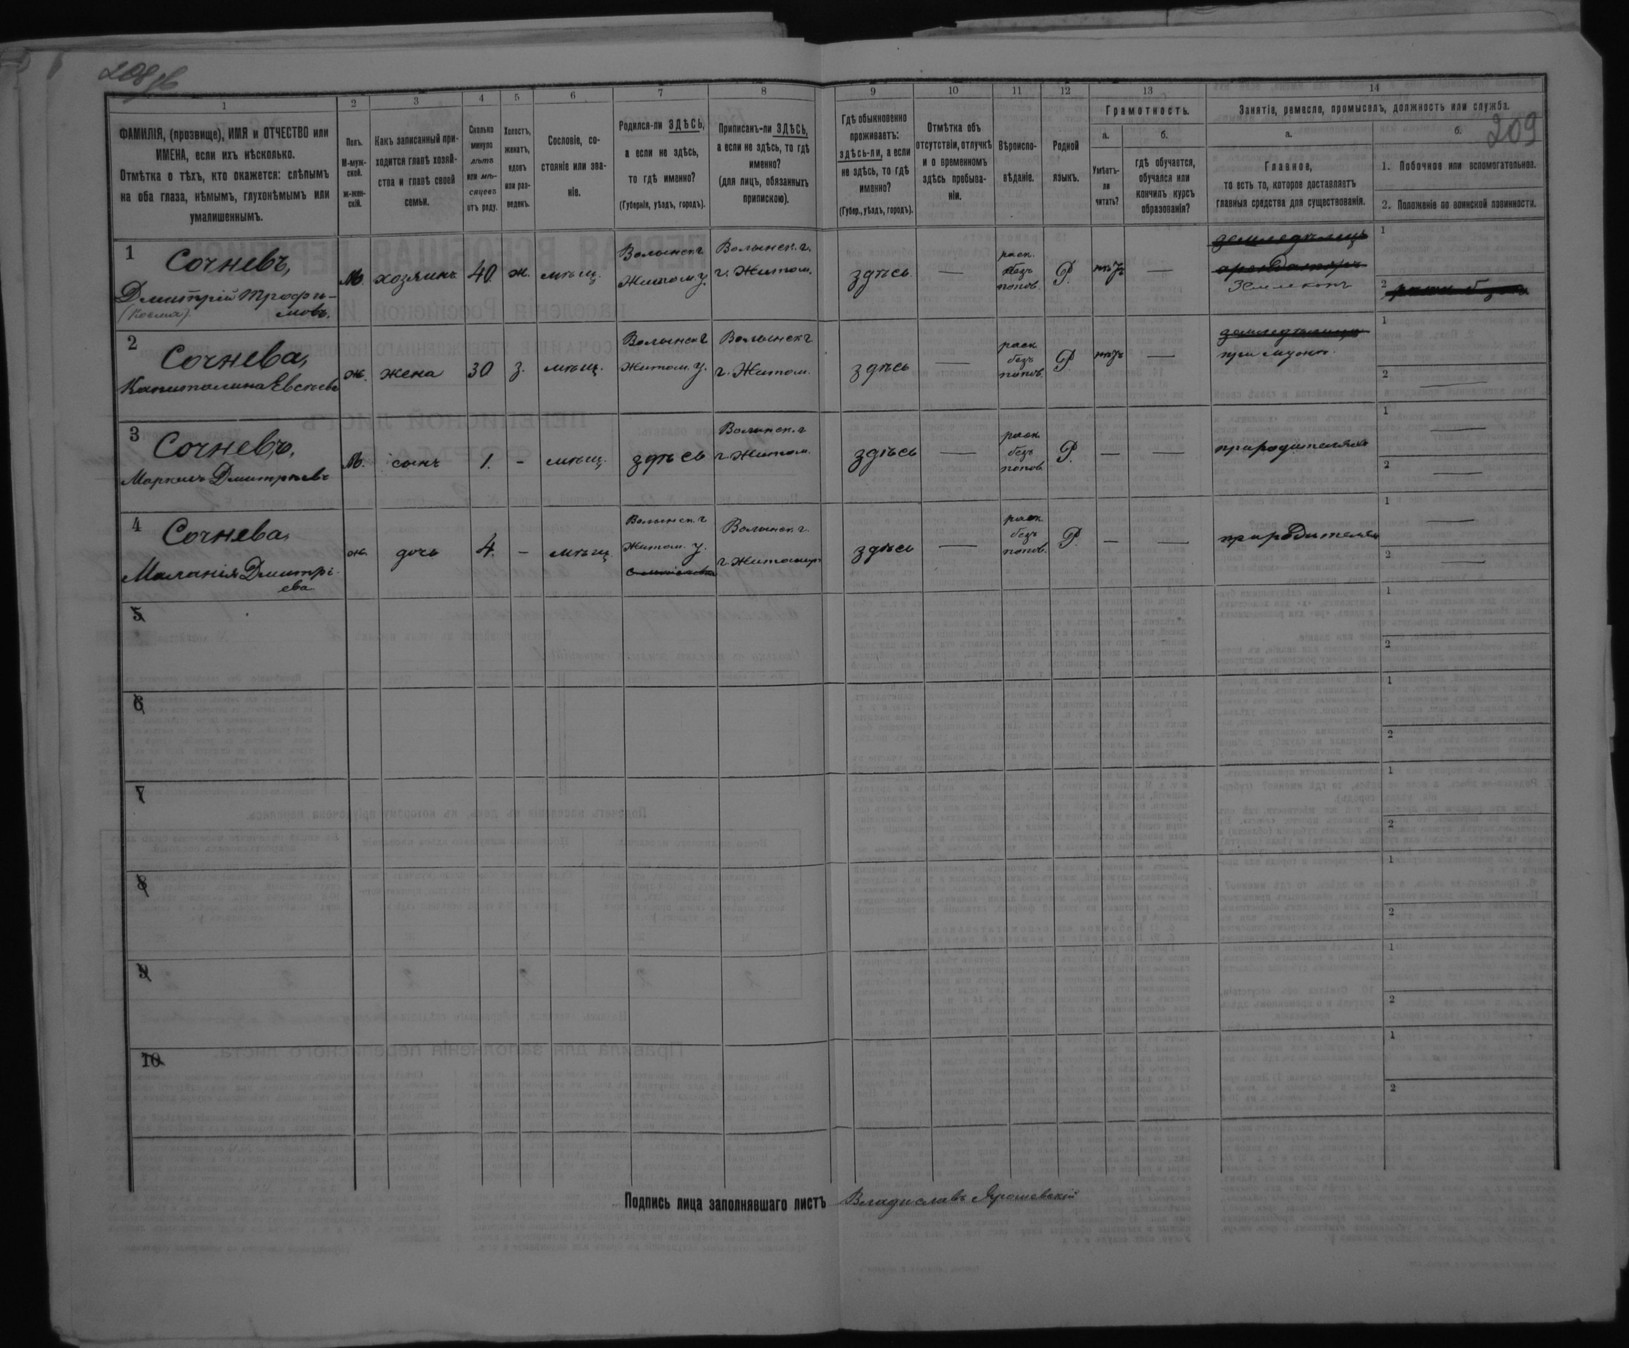 209
1
2
3
4
5
6
7
8
9
10
11
12
13
14
ФАМИЛІЯ, (прозвище), ИМЯ и ОТЧЕСТВО или
ИМЕНА, если ихъ нѣсколько.
Отмѣтка о тѣхъ, кто окажется: слѣпымъ
на оба глаза, нѣмымъ, глухонѣмымъ или
умалишеннымъ.
Полъ.
М-муж-
ской.
ж-жен-
скій.
Какъ записанный при-
ходится главѣ хозяй-
ства и главѣ своей
семьи.
Сколько
минуло
лѣтъ
или мѣ-
сяцевъ
отъ роду.
Холостъ,
женатъ,
вдовъ
или раз-
веденъ.
Сословіе, со-
стояніе или зва-
ніе.
Родился-ли ЗДѢСЬ,
а если не здѣсь,
то гдѣ именно?
(Губернія, уѣздъ, городъ).
Приписанъ-ли ЗДѢСЬ,
а если не здѣсь, то гдѣ
именно?
(для лицъ, обязанныхъ
припискою).
Гдѣ обыкновенно
проживаетъ:
здѣсь-ли, а если
не здѣсь, то гдѣ
именно?
(Губер., уѣздъ, городъ).
Отмѣтка объ
отсутствіи, отлучкѣ
и о временномъ
здѣсь пребыва-
ніи.
Вѣроиспо-
вѣданіе.
Родной
языкъ.
Грамотность.
а.
Умѣетъ-
ли
читать?
б.
гдѣ обучается,
обучался или
кончилъ курсъ
образованія?
Занятіе, ремесло, промыселъ, должность или служба.
а.
Главное,
то есть то, которое доставляетъ
главныя средства для существованія.
б.
1. Побочное или вспомогательное.
2. Положеніе по воинской повинности.
1 Сочневъ,
Дмитрій Трофи-
мовъ.
М. хозяинъ 40 ж. мѣщ.
Волынск г
Житом. у.
Волынск. г.
г. Житом.
здѣсь —
раск.
безъ
попов.
Р. нѣтъ —
земледѣлецъ
1
2
2 Сочнева,
Капитолина Евсѣева
ж. жена 30 з. мѣщ.
Волынск г
Житом. у.
Волынск г
г. Житом.
здѣсь —
раск
безъ
попов.
Р нѣтъ —
при мужѣ.
1
2 —
3 Сочневъ,
Маркелъ Дмитріевъ
М. сынъ 1. - мѣщ
здѣсь
Волынск. г
г Житом.
здѣсь —
раск
безъ
попов
Р. — —
при родителяхъ
1 —
2 —
4 Сочнева,
Маланія Дмитрі-
ева
ж. дочь 4. - мѣщ
Волынск г
Житом. у.
Волынск г.
г. Житомир
здѣсь —
раск
безъ
попов.
Р. — —
при родителях
1 —
2 —
5
1
2
6
1
2
7
1
2
8
1
2
9
1
2
10
1
2
Подпись лица заполнявшаго листъ Владиславъ Ярошевскій